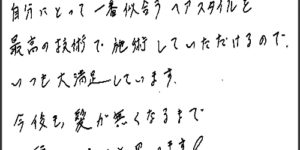 自分にとって一番似合うヘアスタイルを
最高の技術で施術していただけるので、
いつも大満足しています。
今後も、髪が無くなるまで
ます!